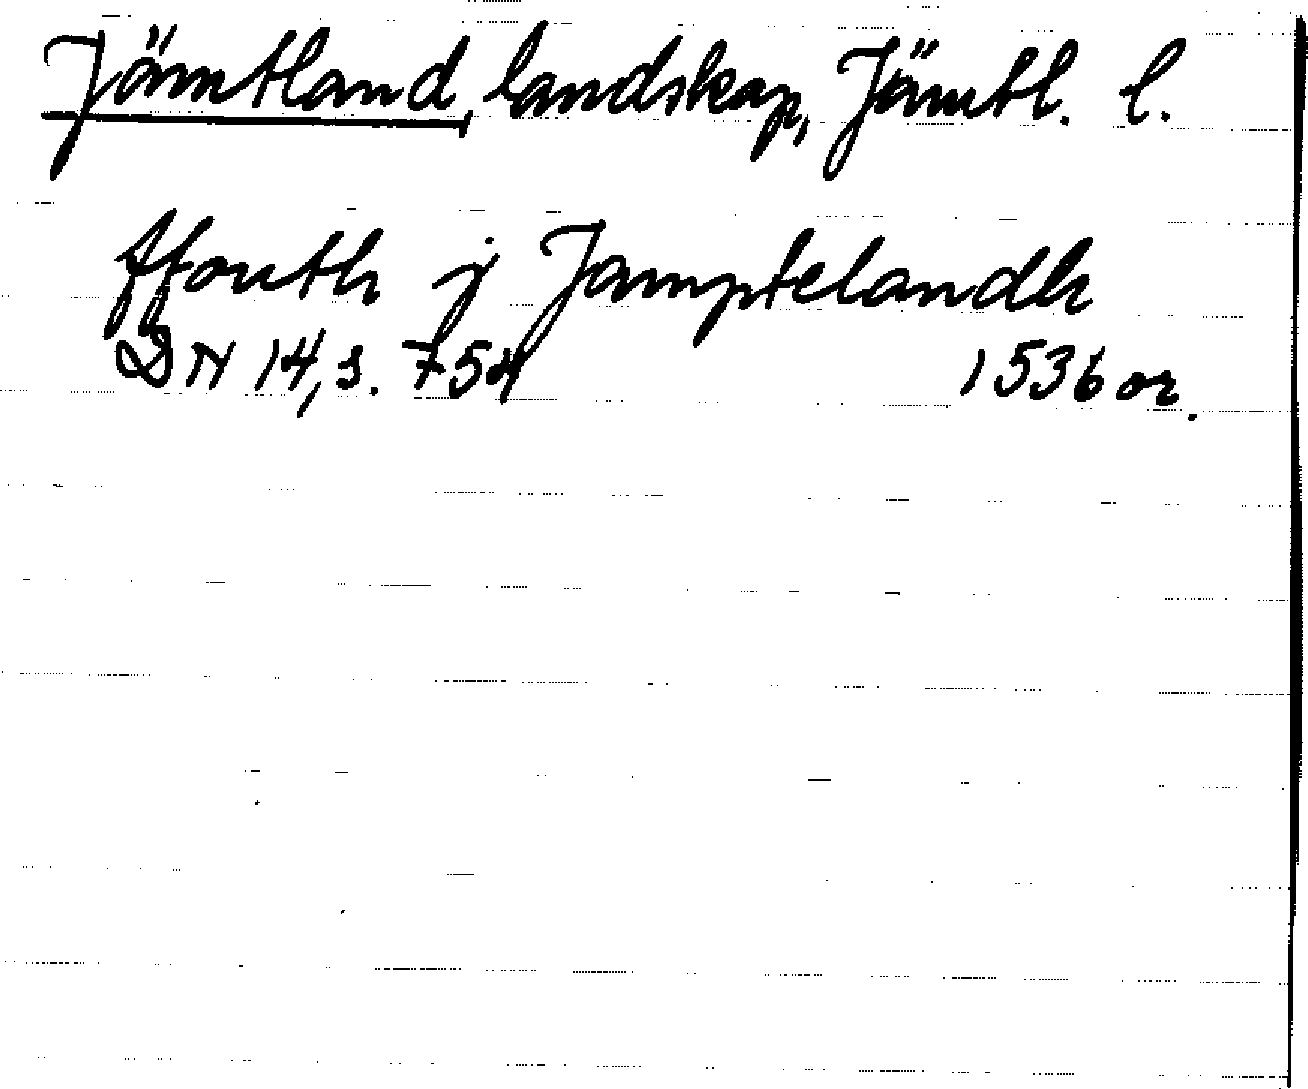 Jämtland, landskap, Jämtl. l.
ffouth j Jamptelandh
DN 14, s. 754 1536 or.